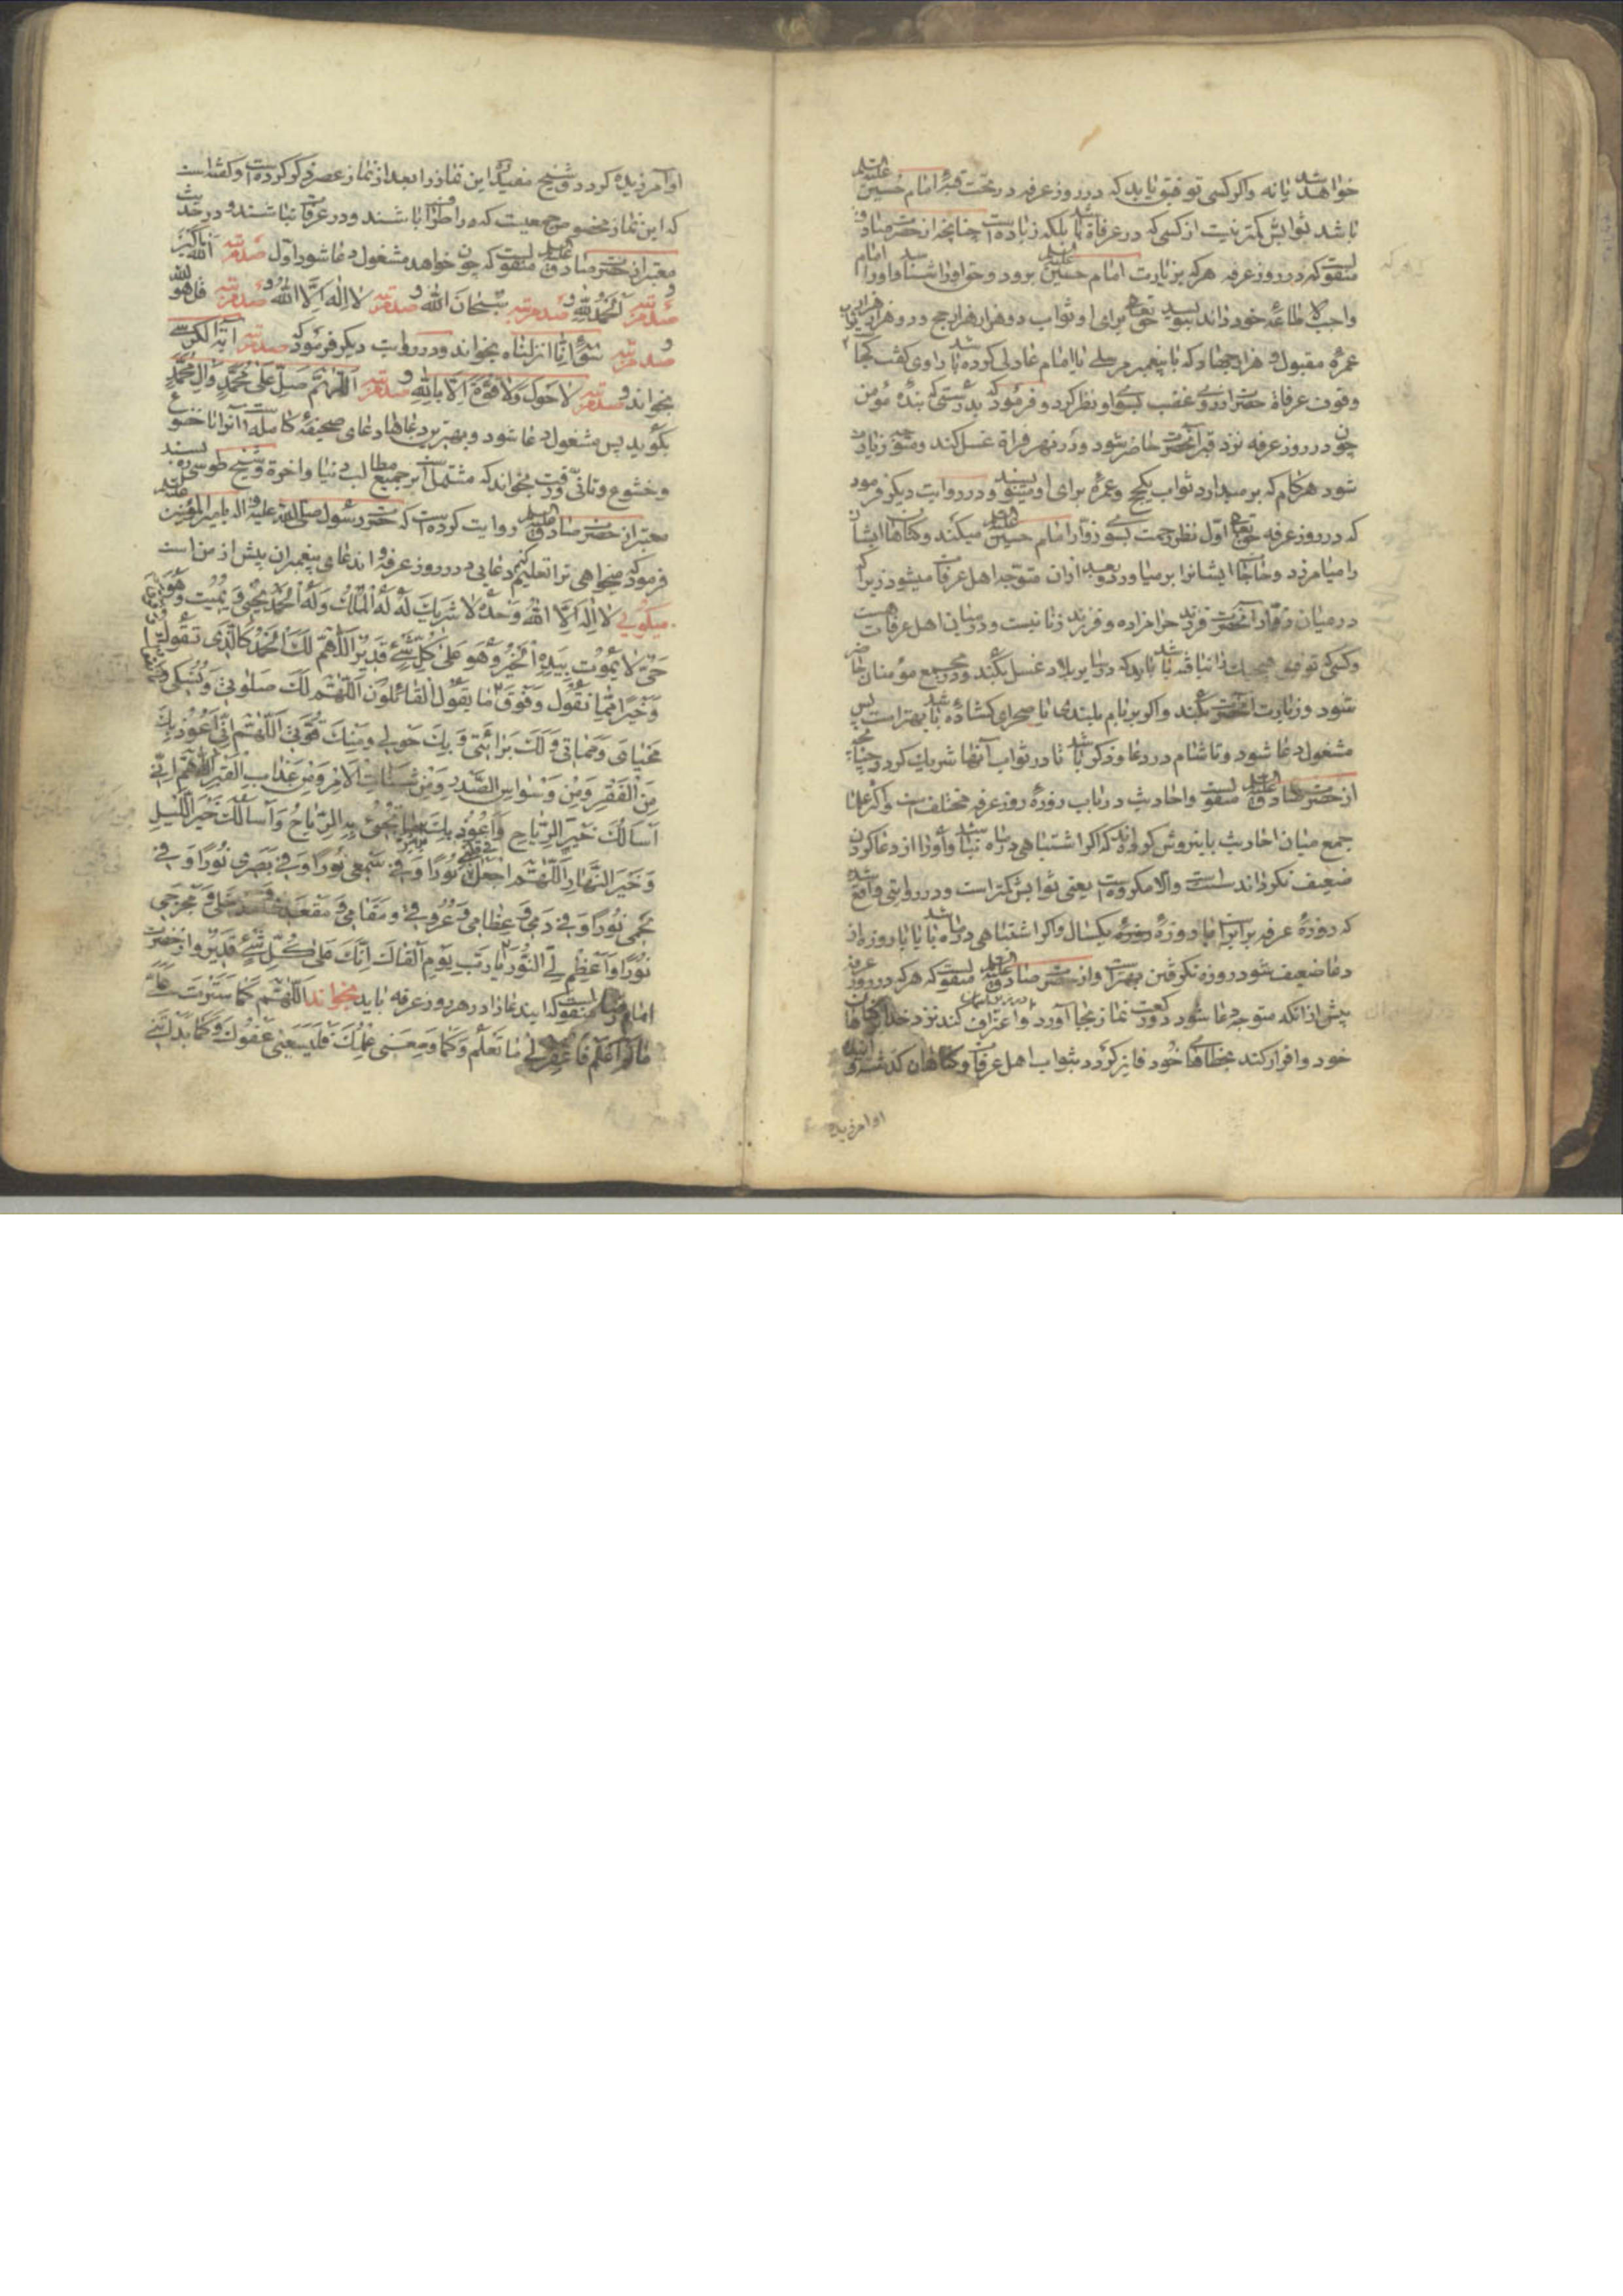 خواهد شد یا نه واکر کسی توفیق یابد که در روز عرفه در تحت قبهٔ امام حسین علیه السلم
باشد ثوابش کمتر نیست از کسی که در عرفاة باشد بلکه زیاده است چنانچه از حضرت صادق
منقولست که در روز عرفه هر که بزیارت امام حسین علیه السلم برود و حق او را شناسد و او را امام
واجب الاطاعهٔ خود داند بنویسد حق تعالی برای او ثواب دو هزار هزار حج و دو هزار هزار
عمرهٔ مقبول و هزار جهاد که با پیغمبر مرسلی یا امام عادلی کرده باشد راوی کفت کجا
وقوف عرفاة حضرت از روی غضب بسوی او نظر کرد و فرمود که بدرستی که بندهٔ مؤمن
چون در روز عرفه نزد قبر آنحضرت حاضر شود و در نهر فراة غسل کند و متوجه زیارت
شود هر کام که بر میدارد ثواب یکحج وعمرهٔ برای او مینویسند و در روایت دیکر فرمود
که در روز عرفه حق تعالی اول نظر رحمت بسوی زوار امام حسین علیه السلم میکند و کناهان ایشان
را میامرزد و حاجات ایشانرا برمیاورد و بعد از ان متوجه اهل عرفات میشود زیرا که
در میان زوار آنحضرت فرزند حرامزاده و فرزند زنا نیست و در میان اهل عرفات هست
وکسی که توفیق هیچیک نیافته باشد باید که در سایر بلاد غسل بکند و در مجمع مؤمنان حاضر
شود و زیارت آنحضرت بکند واکر بر بام بلندی یا صحرای کشادهٔ باشد بهتر است پس
مشغول دعا شود و تا شام در دعا و ذکر باشد تا در ثواب آنها شریك کردد چنانچه
از حضرت صادق علیه السلم منقولست واحادیث در باب روزهٔ روز عرفه مختلف است و اکثر علما
جمع میان احادیث باینروش کرده‌اند که اکر اشتباهی در ماه نباشد و او را از دعا کردن
ضعیف نکرداند سنت است والا مکروه است یعنی ثوابش کمتر است و در روایتی واقع شده
که روزهٔ عرفه برابر است با روزهٔ یکسال واکر اشتباهی در ماه باشد یا با روزه از
دعا ضعیف شود روزه نکرفتن بهتر است و از حضرت صادق علیه السلم منقولست که هر که در روز عرفه
پیش از انکه متوجه دعا شود دو رکعت نماز بجا آورد و اعتراف کند نزد خدا بکناهان
خود و اقرار کند بخطاهای خود فایز کردد بثواب اهل عرفات و کناهان کذشته و آینده
او امرزیده
او آمرزیده کردد و شیخ مفید این نماز را بعد از نماز عصر ذکر کرده است و کفته است
که این نماز مخصوص جمعیت که در اطراف باشند و در عرفات نباشند و در حدیث
معتبر از حضرت صادق علیه السلم منقولست که چون خواهد مشغول دعا شود اول صد مرتبه الله اکبر
و صد مرتبه الحمد لله و صد مرتبه سبحان الله و صد مرتبه لا اله الا الله و صد مرتبه قل هو الله
و صد مرتبه سورهٔ انا انزلناه بخواند و در روایت دیکر فرمود که صد مرتبه آیة الکرسی
بخواند و صد مرتبه لا حول ولا قوة الا بالله و صد مرتبه اللهم صل علی محمد وال محمد
بکوید پس مشغول دعا شود و بهترین دعاها دعای صحیفهٔ کامله است آنرا با خضوع
و خشوع و تانی و رقت بخواند که مشتمل است بر جمیع مطالب دنیا واخرة و شیخ طوسی ره بسند
معتبر از حضرت صادق علیه السلم روایت کرده است که حضرت رسول صلی الله علیه واله بامیرالمؤمنین علیه السلم
فرمود که میخواهی ترا تعلیم کنم دعایی در روز عرفه و اندعای پیغمبران پیش از من است
میکوئی لا اله الا الله وحده لا شریك له له الملك وله الحمد یحیی ویمیت وهو
حی لا یموت بیده الخیر وهو علی کل شئ قدیر اللهم لك الحمد کالذی تقول
وخیرا مما نقول وفوق ما یقول القائلون اللهم لك صلوتی ونسکی و
محیای ومماتی ولك براءتی وبك حولی ومنك قوتی اللهم انی اعوذ بك
من الفقر ومن وسواس الصدر ومن شتات الامر ومن عذاب القبر اللهم انی
اسالك خیر الریاح واعوذ بك من شر ما تجئ به الریاح واسالك خیر اللیل
وخیر النهار اللهم اجعل فی قلبی نورا وفی سمعی نورا وفی بصری نورا وفی
لحمی نورا وفی دمی وعظامی وعروقی ومقامی ومقعدی ومدخلی ومخرجی
نورا واعظم لی النور یا رب یوم القاك انك علی کل شئ قدیر و از حضرت
امام رضا منقولست که ایندعا را در هر روز عرفه باید بخواند اللهم کما سترت علی
ما لم اعلم فاغفر لی ما تعلم وکما وسعنی علمك فلیسعنی عفوك وکما بدأتنی